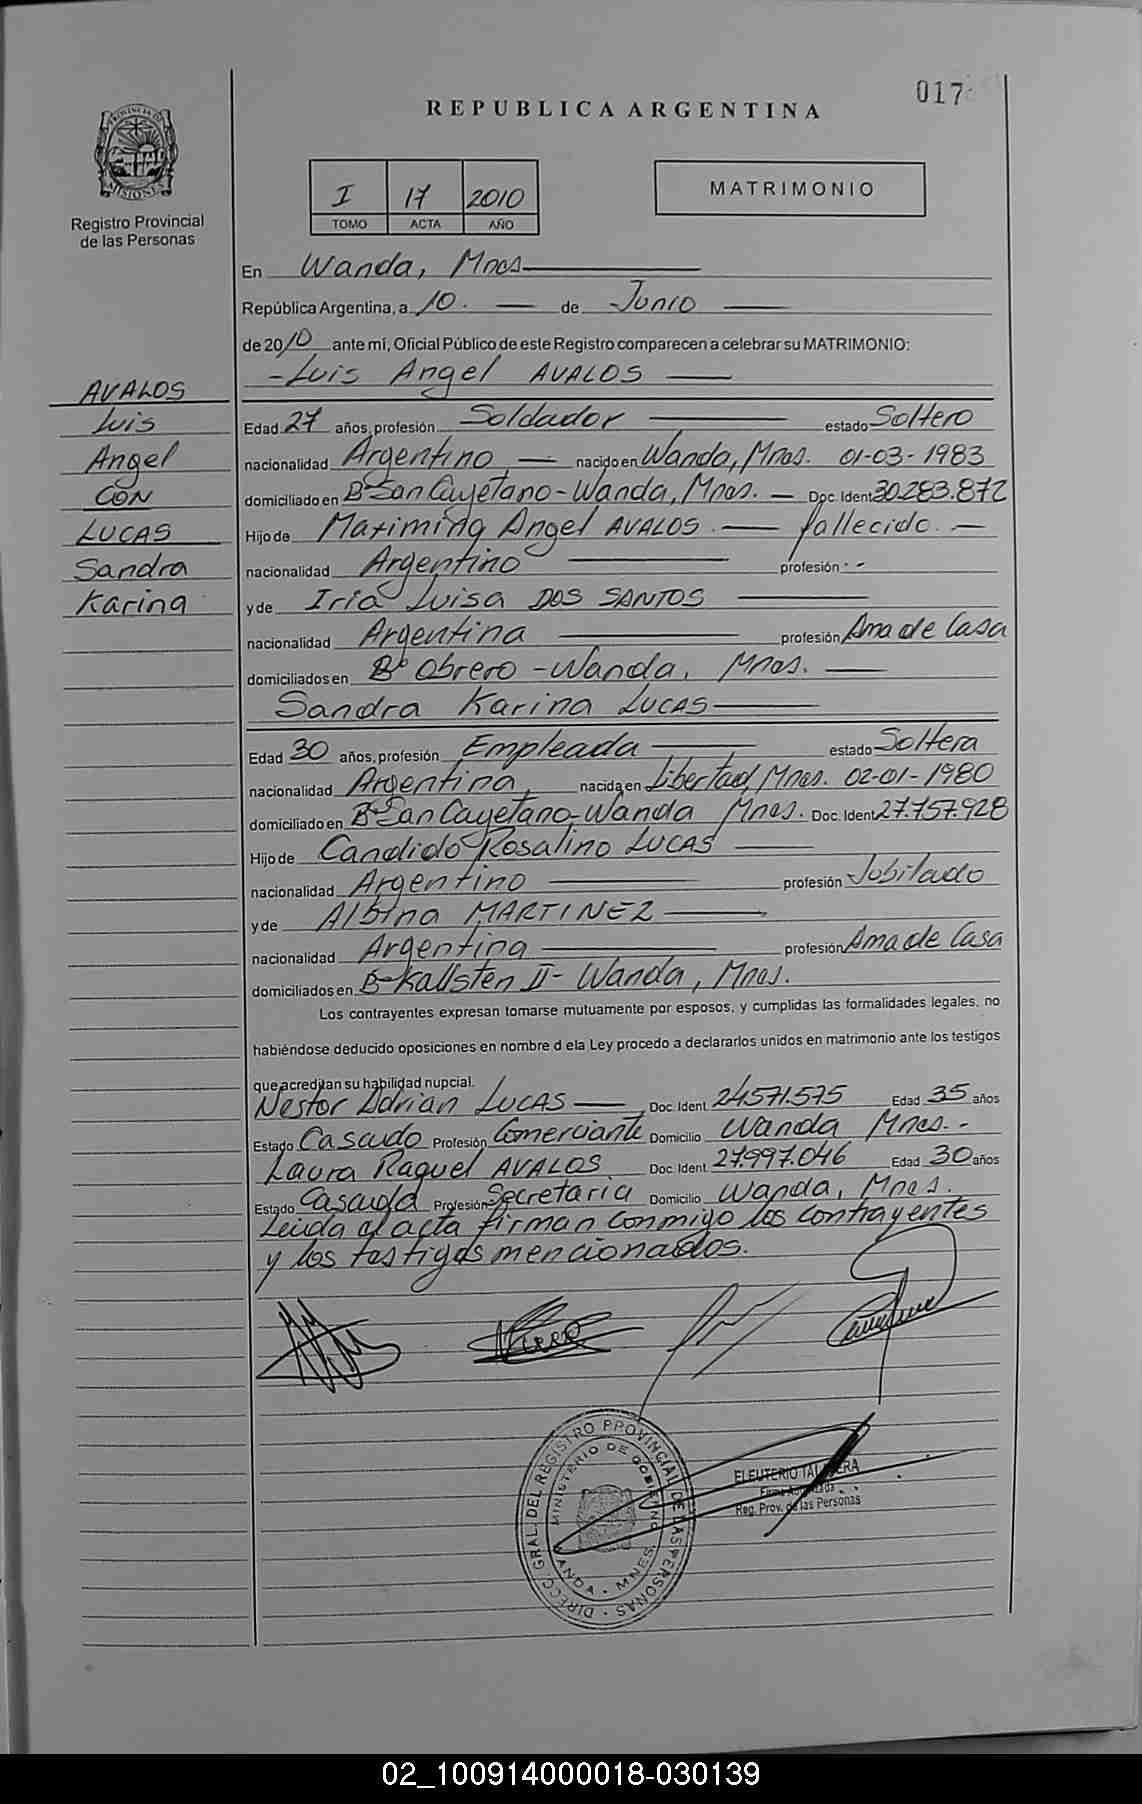 017
REPUBLICA ARGENTINA
PROVINCIA DE MISIONES
Registro Provincial
de las Personas
I 17 2010
TOMO ACTA AÑO
MATRIMONIO
En Wanda, Mnes
República Argentina, a 10. de Junio
de 2010 ante mí, Oficial Público de este Registro comparecen a celebrar su MATRIMONIO:
- Luis Angel AVALOS
AVALOS
Luis
Angel
CON
LUCAS
Sandra
Karina
Edad 27 años, profesión Soldador estado Soltero
nacionalidad Argentino, nacido en Wanda, Mnes. 01-03-1983
domiciliado en Bº San Cayetano - Wanda, Mnes. Doc. Ident 30.283.872
Hijo de Maximino Angel AVALOS. fallecido.
nacionalidad Argentino profesión --
y de Iria Luisa DOS SANTOS
nacionalidad Argentina profesión Ama de Casa
domiciliados en Bº Obrero - Wanda, Mnes.
Sandra Karina LUCAS
Edad 30 años, profesión Empleada estado Soltera
nacionalidad Argentina, nacida en Libertad, Mnes. 02-01-1980
domiciliado en Bº San Cayetano - Wanda Mnes. Doc. Ident 27.757.928
Hijo de Candido Rosalino LUCAS
nacionalidad Argentino profesión Jubilado
y de Albina MARTINEZ
nacionalidad Argentina profesión Ama de Casa
domiciliados en Bº Kallsten II - Wanda, Mnes.
Los contrayentes expresan tomarse mutuamente por esposos, y cumplidas las formalidades legales, no
habiéndose deducido oposiciones en nombre d ela Ley procedo a declararlos unidos en matrimonio ante los testigos
que acreditan su habilidad nupcial.
Nestor Adrian LUCAS Doc. Ident 24.571.575 Edad 35 años
Estado Casado Profesión Comerciante Domicilio Wanda Mnes.-
Laura Raquel AVALOS Doc. Ident 27.997.046 Edad 30 años
Estado Casada Profesión Secretaria Domicilio Wanda, Mnes.
Leida el acta firman conmigo los contrayentes
y los testigos mencionados.
DIRECC. GRAL. DEL REGISTRO PROVINCIAL DE LAS PERSONAS
MINISTERIO DE GOBIERNO
WANDA - MNES.
ELEUTERIO
Firma Autorizada
Reg. Prov. de las Personas
02_100914000018-030139